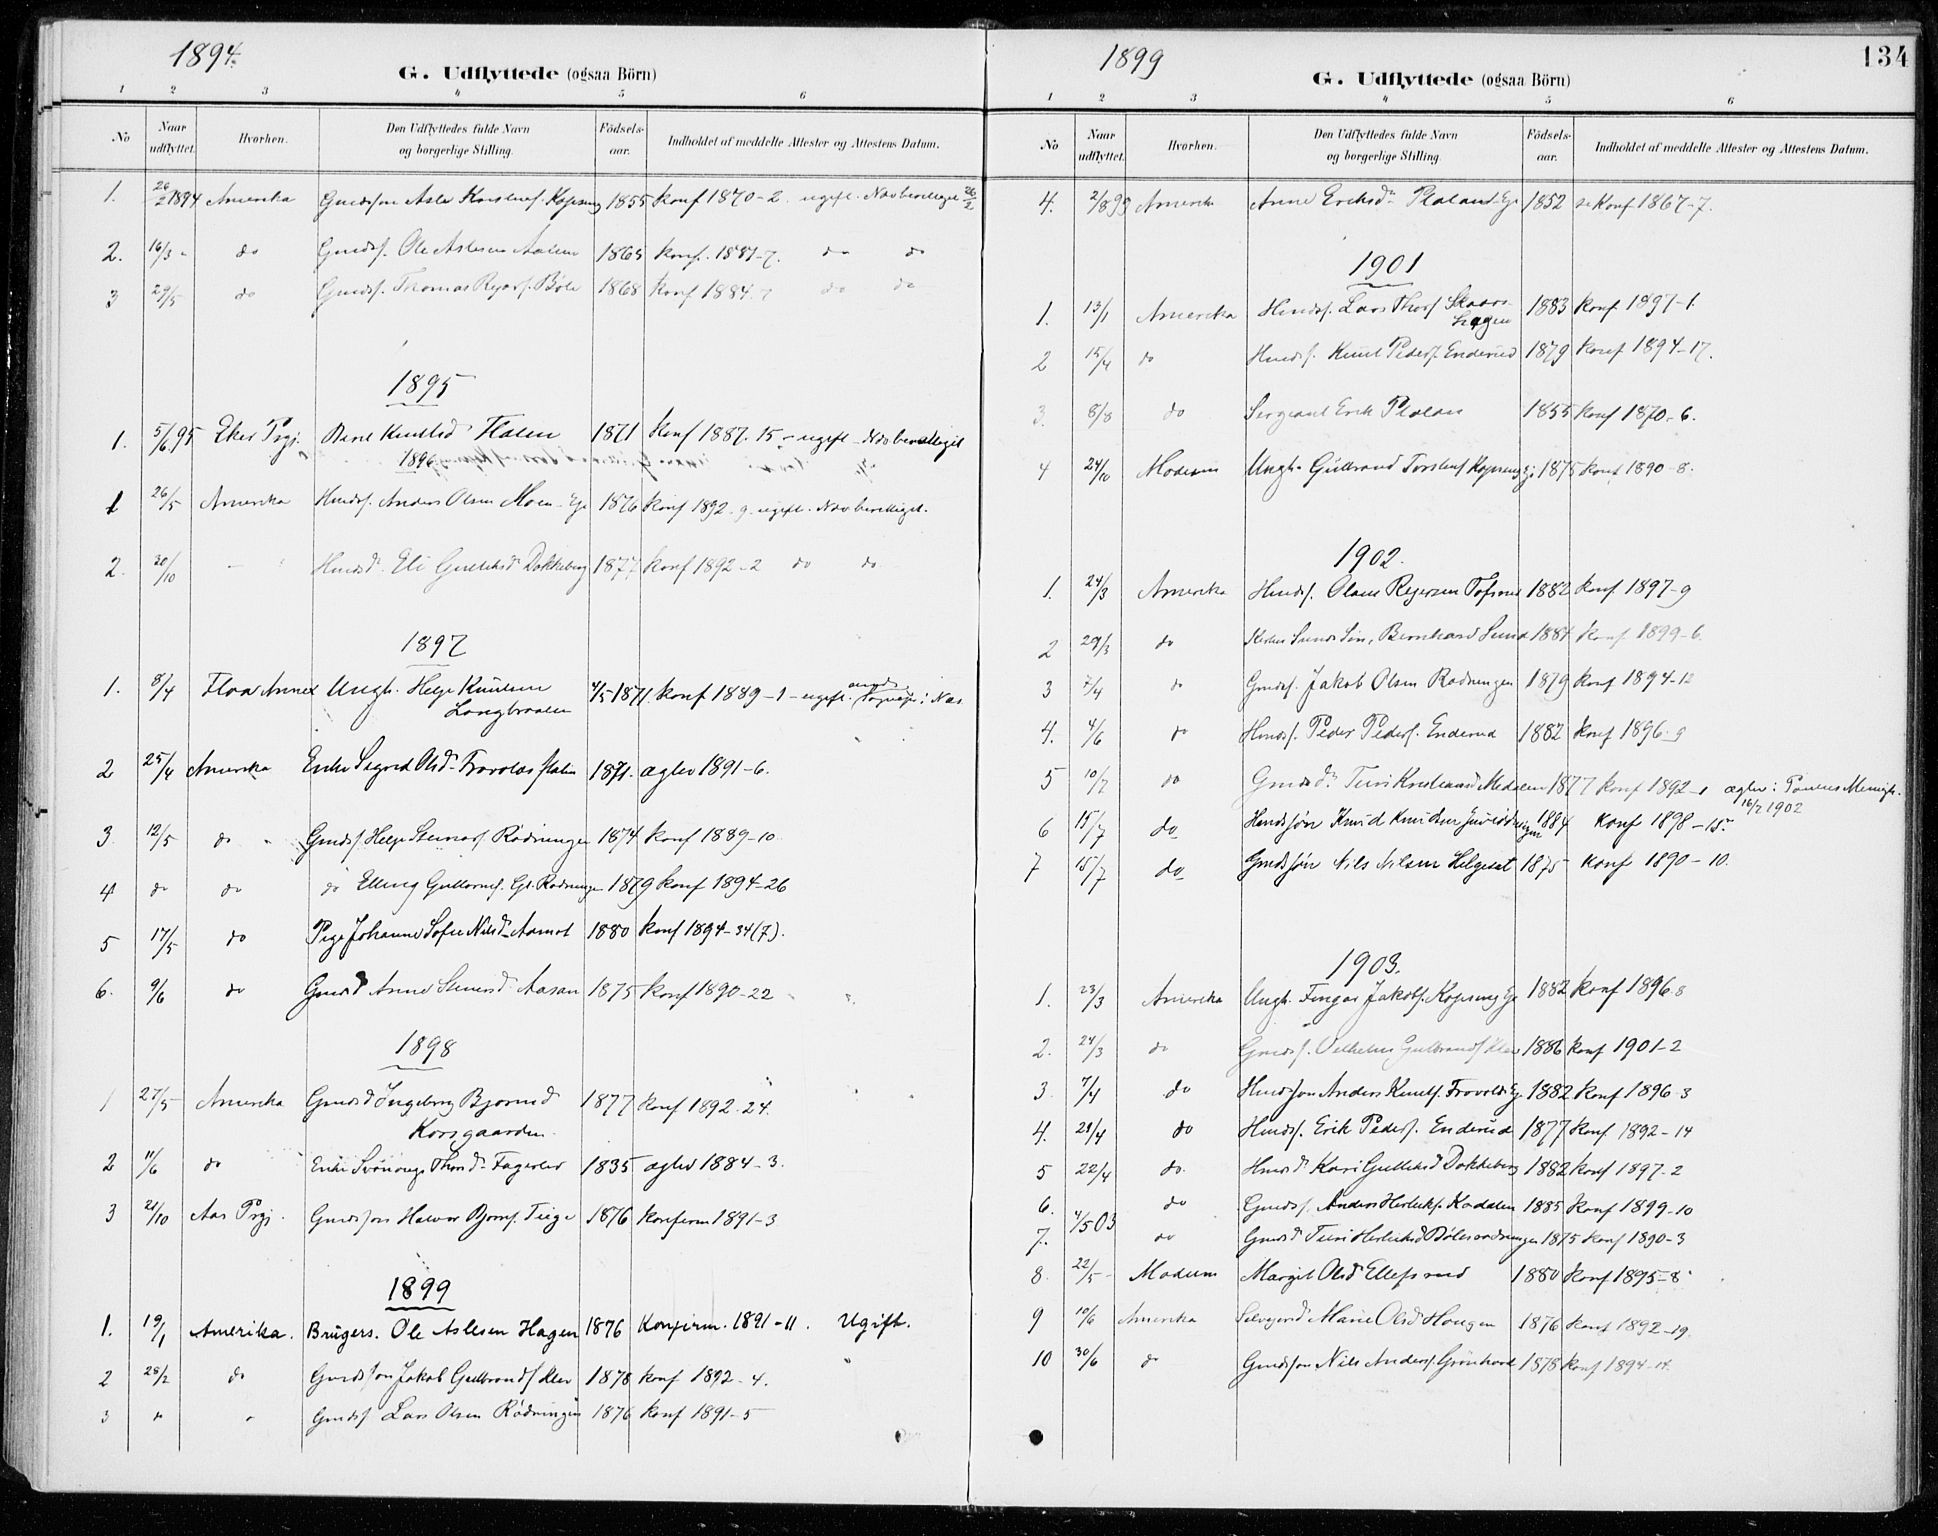 1894.
G. Udflyttede (ogsaa Börn)
1 2 3 4 5 6
No Naar udflyttet. Hvorhen. Den Udflyttedes fulde Navn og borgerlige Stilling. Födsels-aar. Indholdet af meddelte Attester og Attestens Datum.
1. 26/2 1894 Amerika Gaardsøn Aslak 1855 Konf 1870-2. ugift. Nav bevilliget 26/2
2. 16/3 " do Gmds. Ole Aslesen 1865 konf. 1881-7. do do
3 29/5 do Gmds. Thomas Bøle 1868 konf 1884-7 do do
1895
1. 5/6 95 Eker Prgj. Knutsd 1871 Konf 1887. 15 - ugift - bevilliget
1896
1 26/5 Amerika Hmds. Anders Olsen Moen - Eje 1876 konf 1892-9. ugift. bevilliget.
2. 30/10 - " Hmdsd. Eli Gulliksd. Dokkeberg 1877 konf 1892-2 do do
1897
1. 8/4 Flaa Annex Ungk. Helge Knutsen 4/5 1871. konf 1889-1 - ugift. i Næs
Langbraaten
2 25/4 Amerika Enke Sigrid Olsd. 1871. aglev 1891-6.
3. 12/5 do Gmds. Helge Steinars. Rødningen 1874 konf 1889-10.
4 do do do Elling Gulbrands. Rødningen 1879 konf 1894-26
5 17/5 do Pige Johanne Sofie Nilsd. Aamot 1880 Konf 1894-34(7).
6. 9/6 do Gmdsd Anne Steinersd. Aasan 1875 konf 1890-22
1898
1 27/5 Amerika Gmdsd Ingeborg Bjørnsd 1877 konf 1892-24.
Korsgaarden.
2 11/6 do Enke Thorsd. Fagerlid 1835 aglev 1884-3.
3 21/10 Aas Prgj. Gmdsøn Halvor Bjørns. Teige 1876 konfirm 1891-3
1899
1. 19/1 Amerika. Brugers. Ole Aslesen Hagen 1876 Konfirm. 1891-11. Ugift.
2 28/2 do Gmdsøn Jakob Gulbrands. Klev 1878 konf 1892-4.
3 " " Gmds. Lars Olsen Rødningen 1876 konf 1891-5
1899
134
G. Udflyttede (ogsaa Börn)
1 2 3 4 5 6
No Naar udflyttet. Hvorhen. Den Udflyttedes fulde Navn og borgerlige Stilling. Födsels-aar. Indholdet af meddelte Attester og Attestens Datum.
4. 2/8 99 Amerika Anne Eriksd. Plaland Eje 1852 Konf 1867-7.
1901
1. 13/1 Amerika Hmds. Lars Thors. Skaars- 1883 konf 1897-1.
hagen
2 15/4 do Hmds. Knut Peders. Enderud 1879 konf 1894-17.
3. 8/8 do Sergeant Erik 1855 Konf 1870-6.
4 24/10 Modum Ungk. Gulbrand Torstens. Kopseng Ej. 1875 konf 1890-8.
1902.
1. 24/3 Amerika Hmds. Olaus Tofsrud 1882 konf 1897-9
2 29/3 do Søn, Bernhard Lund 1884 konf 1899-6.
3 7/4 do Gmds. Jakob Olsen Rødningen 1879 konf 1894-12
4. 4/6 do Hmds. Peder Peders. Enderud 1882 konf 1896-9
5 10/7 do Gmdsd. Turi Kristiansd. Medalen 1877 konf 1892-1 aglev i Menigh.
16/7 1902
6 15/7 do Hmdssøn Knud Knudsen 1884 konf 1898-15.
7 15/7 do Gmdssøn Nils Nilsen Helgeset 1875 konf 1890-10.
1903.
1. 23/3 Amerika Ungk. Fingar Jakobs. Kopseng Eje 1882 konf 1896-8
2. 24/3 do Gmds. Vilhelm Gulbrands. Klev 1886 konf 1901-2
3. 7/4 do Hmdssøn Anders Knuts. Ej. 1882 konf 1896-3
4. 21/4 do Hmds. Erik Peders. Enderud 1877 konf 1892-14
5 22/4 do. Hmdsd. Kari Gulliksd. Dokkeberg 1882 konf 1897-2
6. do Gmds. Anders Herleiks. Kadalen 1885 konf 1899-10
4/5 03
7. do Gmdsd. Turi Herleiksd. 1875 konf 1890-3
8. 22/5 - Modum Margit Olsd Ellefsrud 1880 Konf 1895-8
9 10/6 Amerika Marie Olsd Haugen 1876 konf 1892-19.
10 30/6 do Gmdssøn Nils Anders. Grønhovd 1878 konf 1894-14.